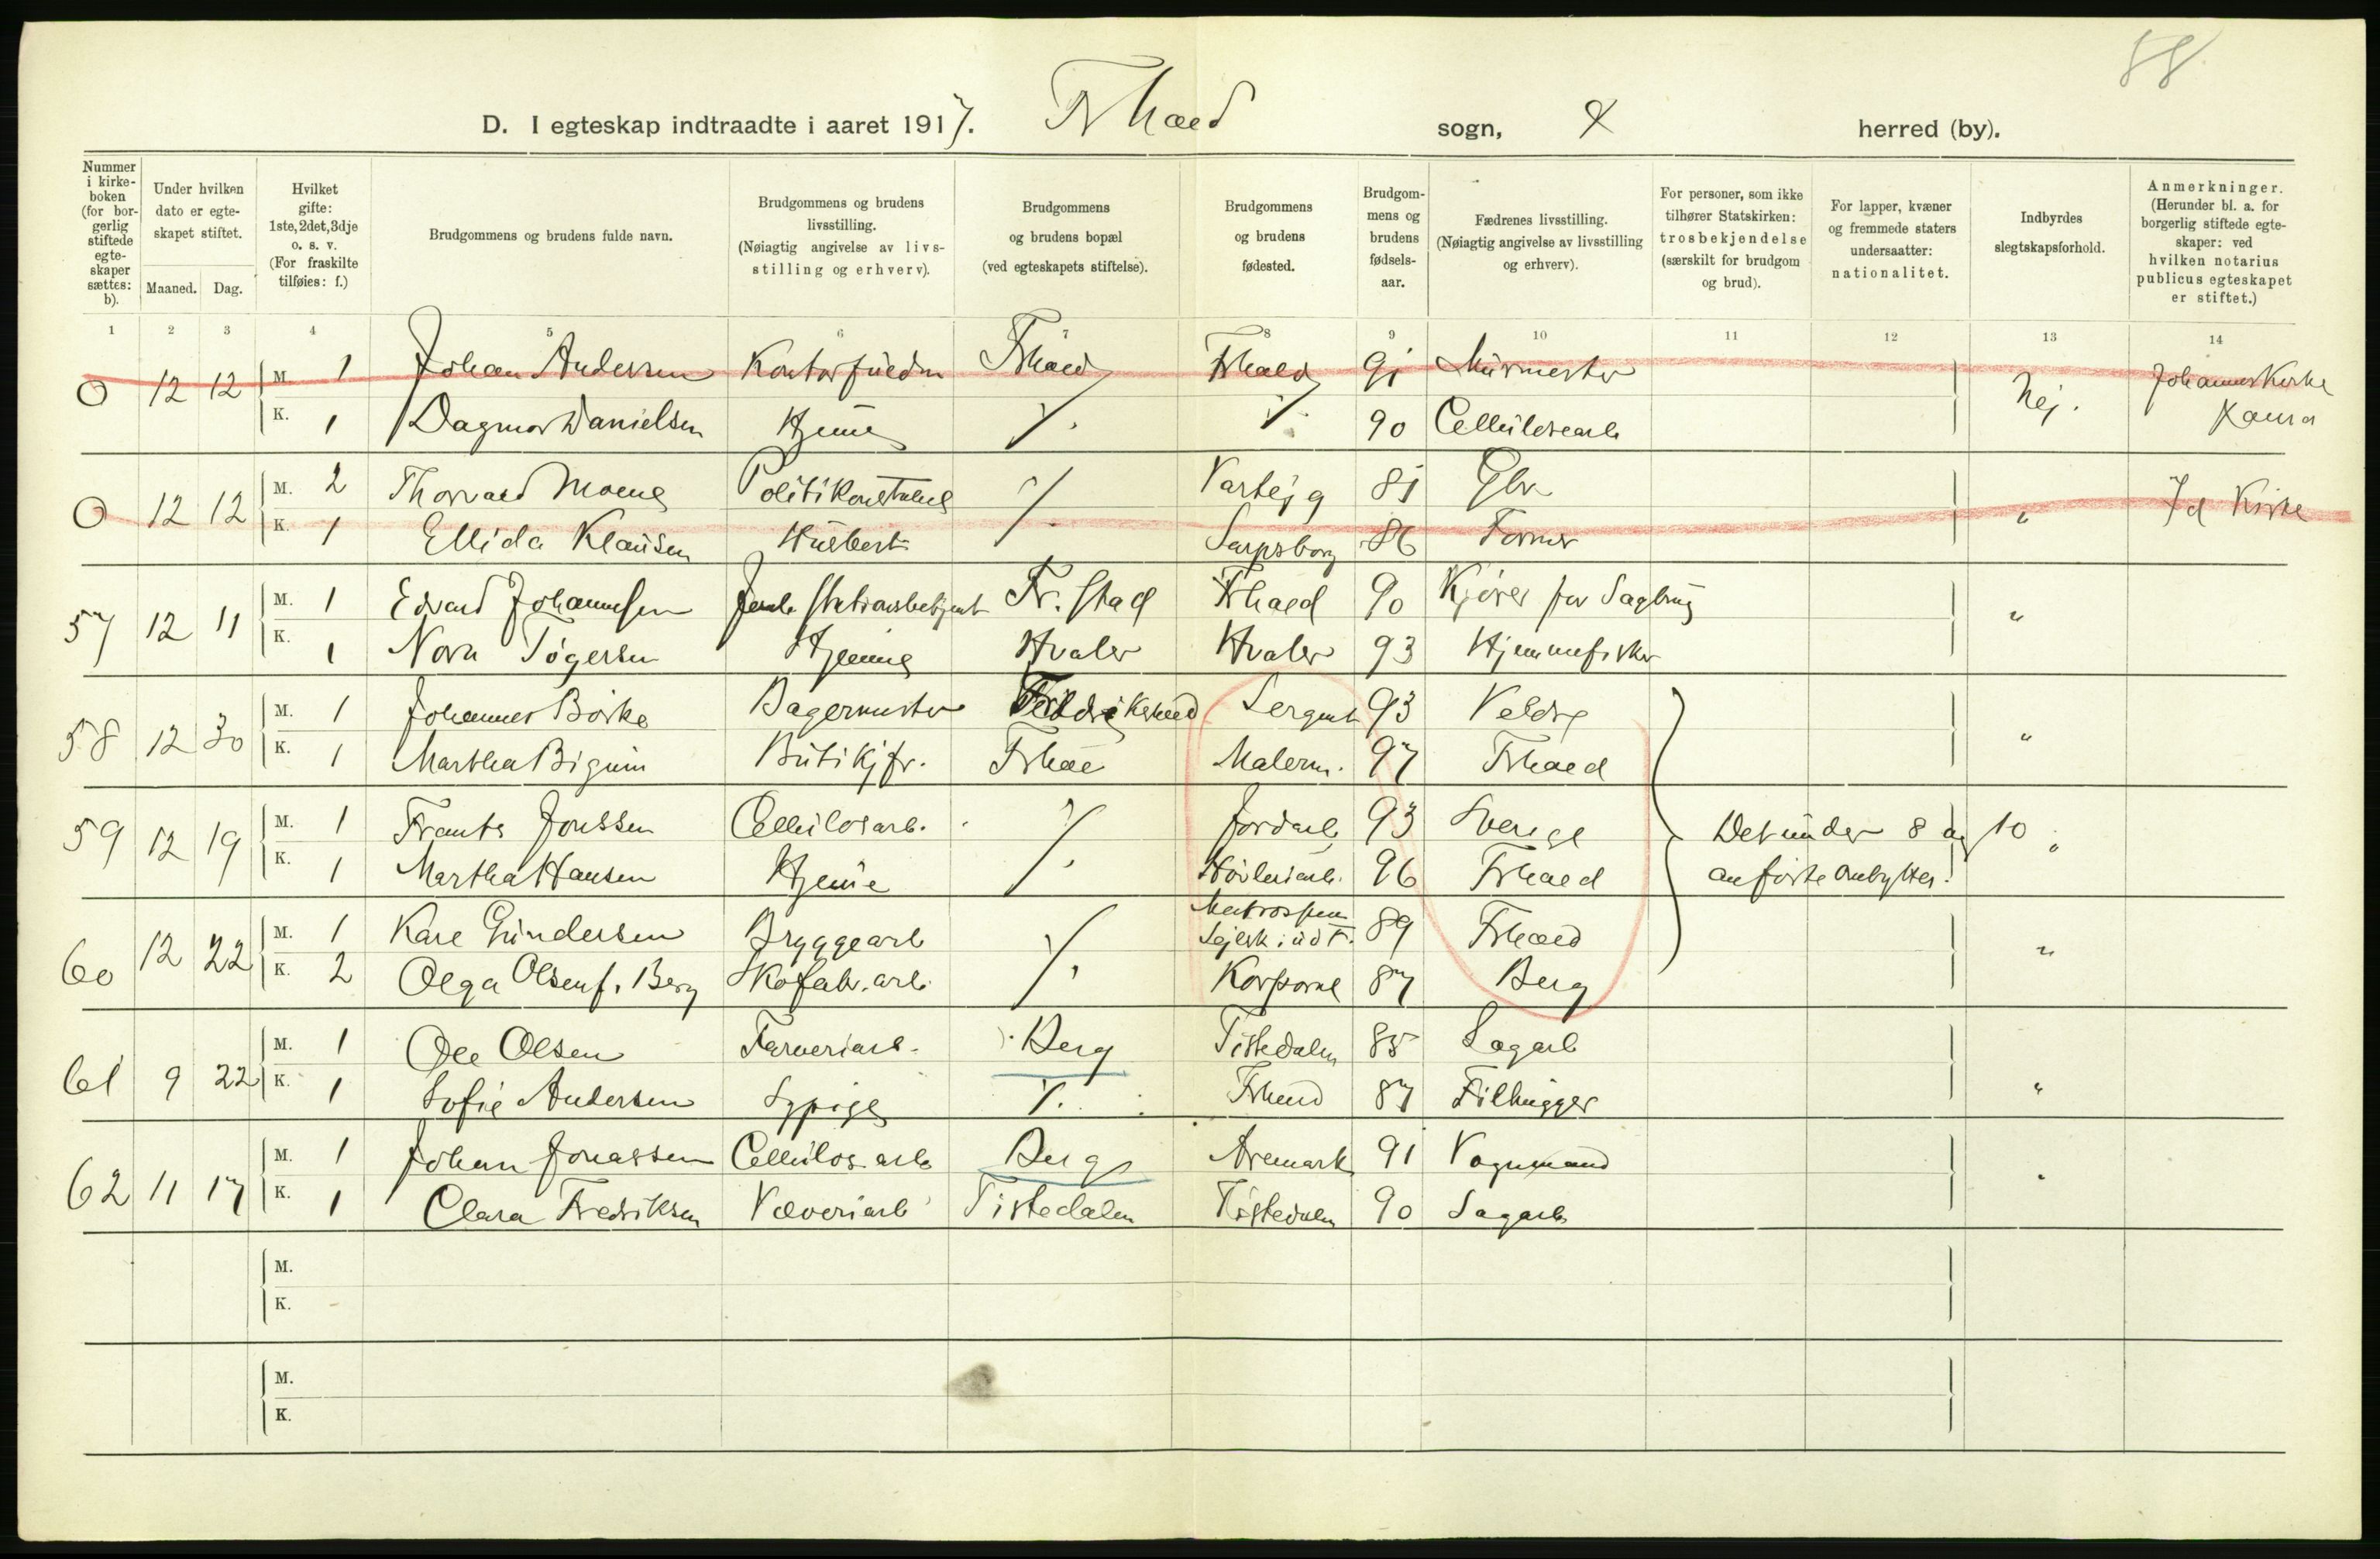 88
D. I egteskap indtraadte i aaret 1917. Frhald sogn, herred (by).
Nummer i kirkeboken (for borgerlig stiftede egteskaper sættes: b).
Under hvilken dato er egteskapet stiftet.
Maaned. Dag.
Hvilket gifte: 1ste, 2det, 3dje o. s. v. (For fraskilte tilføies: f.)
Brudgommens og brudens fulde navn.
Brudgommens og brudens livsstilling. (Nøiagtig angivelse av livsstilling og erhverv).
Brudgommens og brudens bopæl (ved egteskapets stiftelse).
Brudgommens og brudens fødested.
Brudgommens og brudens fødselsaar.
Fædrenes livsstilling. (Nøiagtig angivelse av livsstilling og erhverv).
For personer, som ikke tilhører Statskirken: trosbekjendelse (særskilt for brudgom og brud).
For lapper, kvæner og fremmede staters undersaatter: nationalitet.
Indbyrdes slegtskapsforhold.
Anmerkninger. (Herunder bl. a. for borgerlig stiftede egteskaper: ved hvilken notarius publicus egteskapet er stiftet.)
1 2 3 4 5 6 7 8 9 10 11 12 13 14
O 12 12 M. 1 Johan Andersen Kontorfuldm Frhald Frhald 91 Murmester Nej. Johannes Kirke
K. 1 Dagmar Danielsen Hjemme ٪ ٪ 90 Cellulosearb
O 12 12 M. 2 Thorvald Moene Politikonstabel ٪ Varteig 81 Gbr " Id Kirke
K. 1 Ellida Klausen Husbest. Sarpsborg 86 Former
57 12 11 M. 1 Edvard Johannesen Jernb. Stationsbetjent Fr. stad Frhald 90 Kjører for Sagbrug "
K. 1 Nora Tøgersen Hjemme Hvaler Hvaler 93 Hjemmefisker
58 12 30 M. 1 Johannes Børke Bagermester Fredrikshald Sergent 93 Veldre "
K. 1 Martha Bigum Butikjfr. Frhal Malerm. 97 Frhald
59 12 19 M. 1 Frants Jonssen Cellulosarb. ٪ Jordarb 93 Sverige Det under 8 og 10 "
K. 1 Martha Hansen Hjemme ٪ Høvleriarb. 96 Frhald anførte ombyttes.
60 12 22 M. 1 Kare Gundersen Bryggearb ٪ Matros 89 Frhald "
K. 2 Olga Olsen f. Berg Skofabr. arb. Korporal 87 Berg
61 9 22 M. 1 Ole Olsen Farveriarb. Berg Tistedalen 85 Sagarb "
K. 1 Sofie Andersen Sypige ٪ Frhald 87 Filhugger
62 11 17 M. 1 Johan Jonassen Cellulos. arb Berg Aremark 91 Vognmand "
K. 1 Clara Fredriksen Væveriarb Tistedalen Tistedalen 90 Sagarb
M.
K.
M.
K.